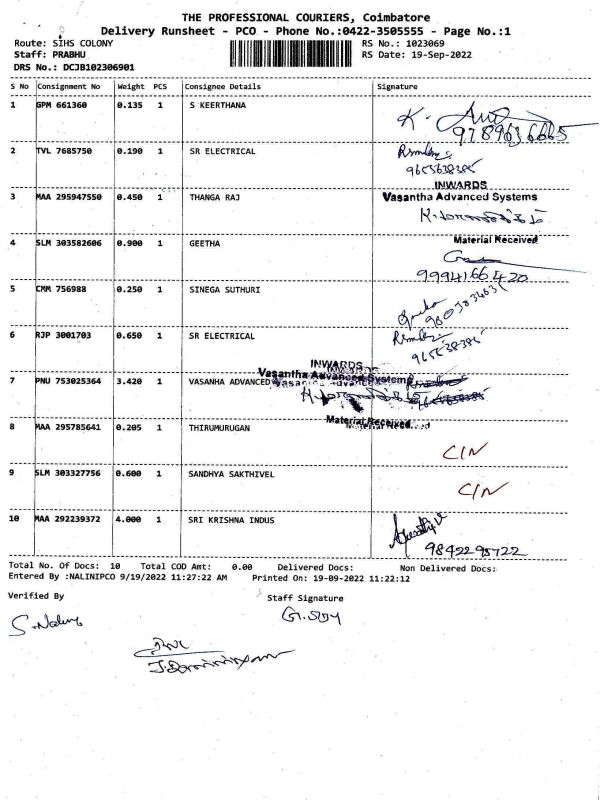 THE PROFESSIONAL COURIERS, Coimbatore
Delivery Runsheet - PCO - Phone No.:0422-3505555 - Page No.:1
Route: SIHS COLONY
RS No.: 1023069
Staff: PRABHU
RS Date: 19-Sep-2022
DRS No.: DCJB102306901
S No Consignment No Weight PCS Consignee Details Signature
1 GPM 661360 0.135 1 S KEERTHANA
9789636665
2 TVL 7685750 0.190 1 SR ELECTRICAL
9655638385
INWARDS
3 MAA 295947550 0.450 1 THANGA RAJ Vasantha Advanced Systems
Material Received
4 SLM 303582606 0.900 1 GEETHA
9994166420
5 CMM 756988 0.250 1 SINEGA SUTHURI
6 RJP 3001703 0.650 1 SR ELECTRICAL
9655638385
INWARDS
Vasantha Advanced Systems
7 PNU 753025364 3.420 1 VASANHA ADVANCED
Material Received
8 MAA 295785641 0.205 1 THIRUMURUGAN
C/N
9 SLM 303327756 0.600 1 SANDHYA SAKTHIVEL
C/N
10 MAA 292239372 4.000 1 SRI KRISHNA INDUS
9842295722
Total No. Of Docs: 10 Total COD Amt: 0.00 Delivered Docs: Non Delivered Docs:
Entered By :NALINIPCO 9/19/2022 11:27:22 AM Printed On: 19-09-2022 11:22:12
Verified By Staff Signature
S.Nalini